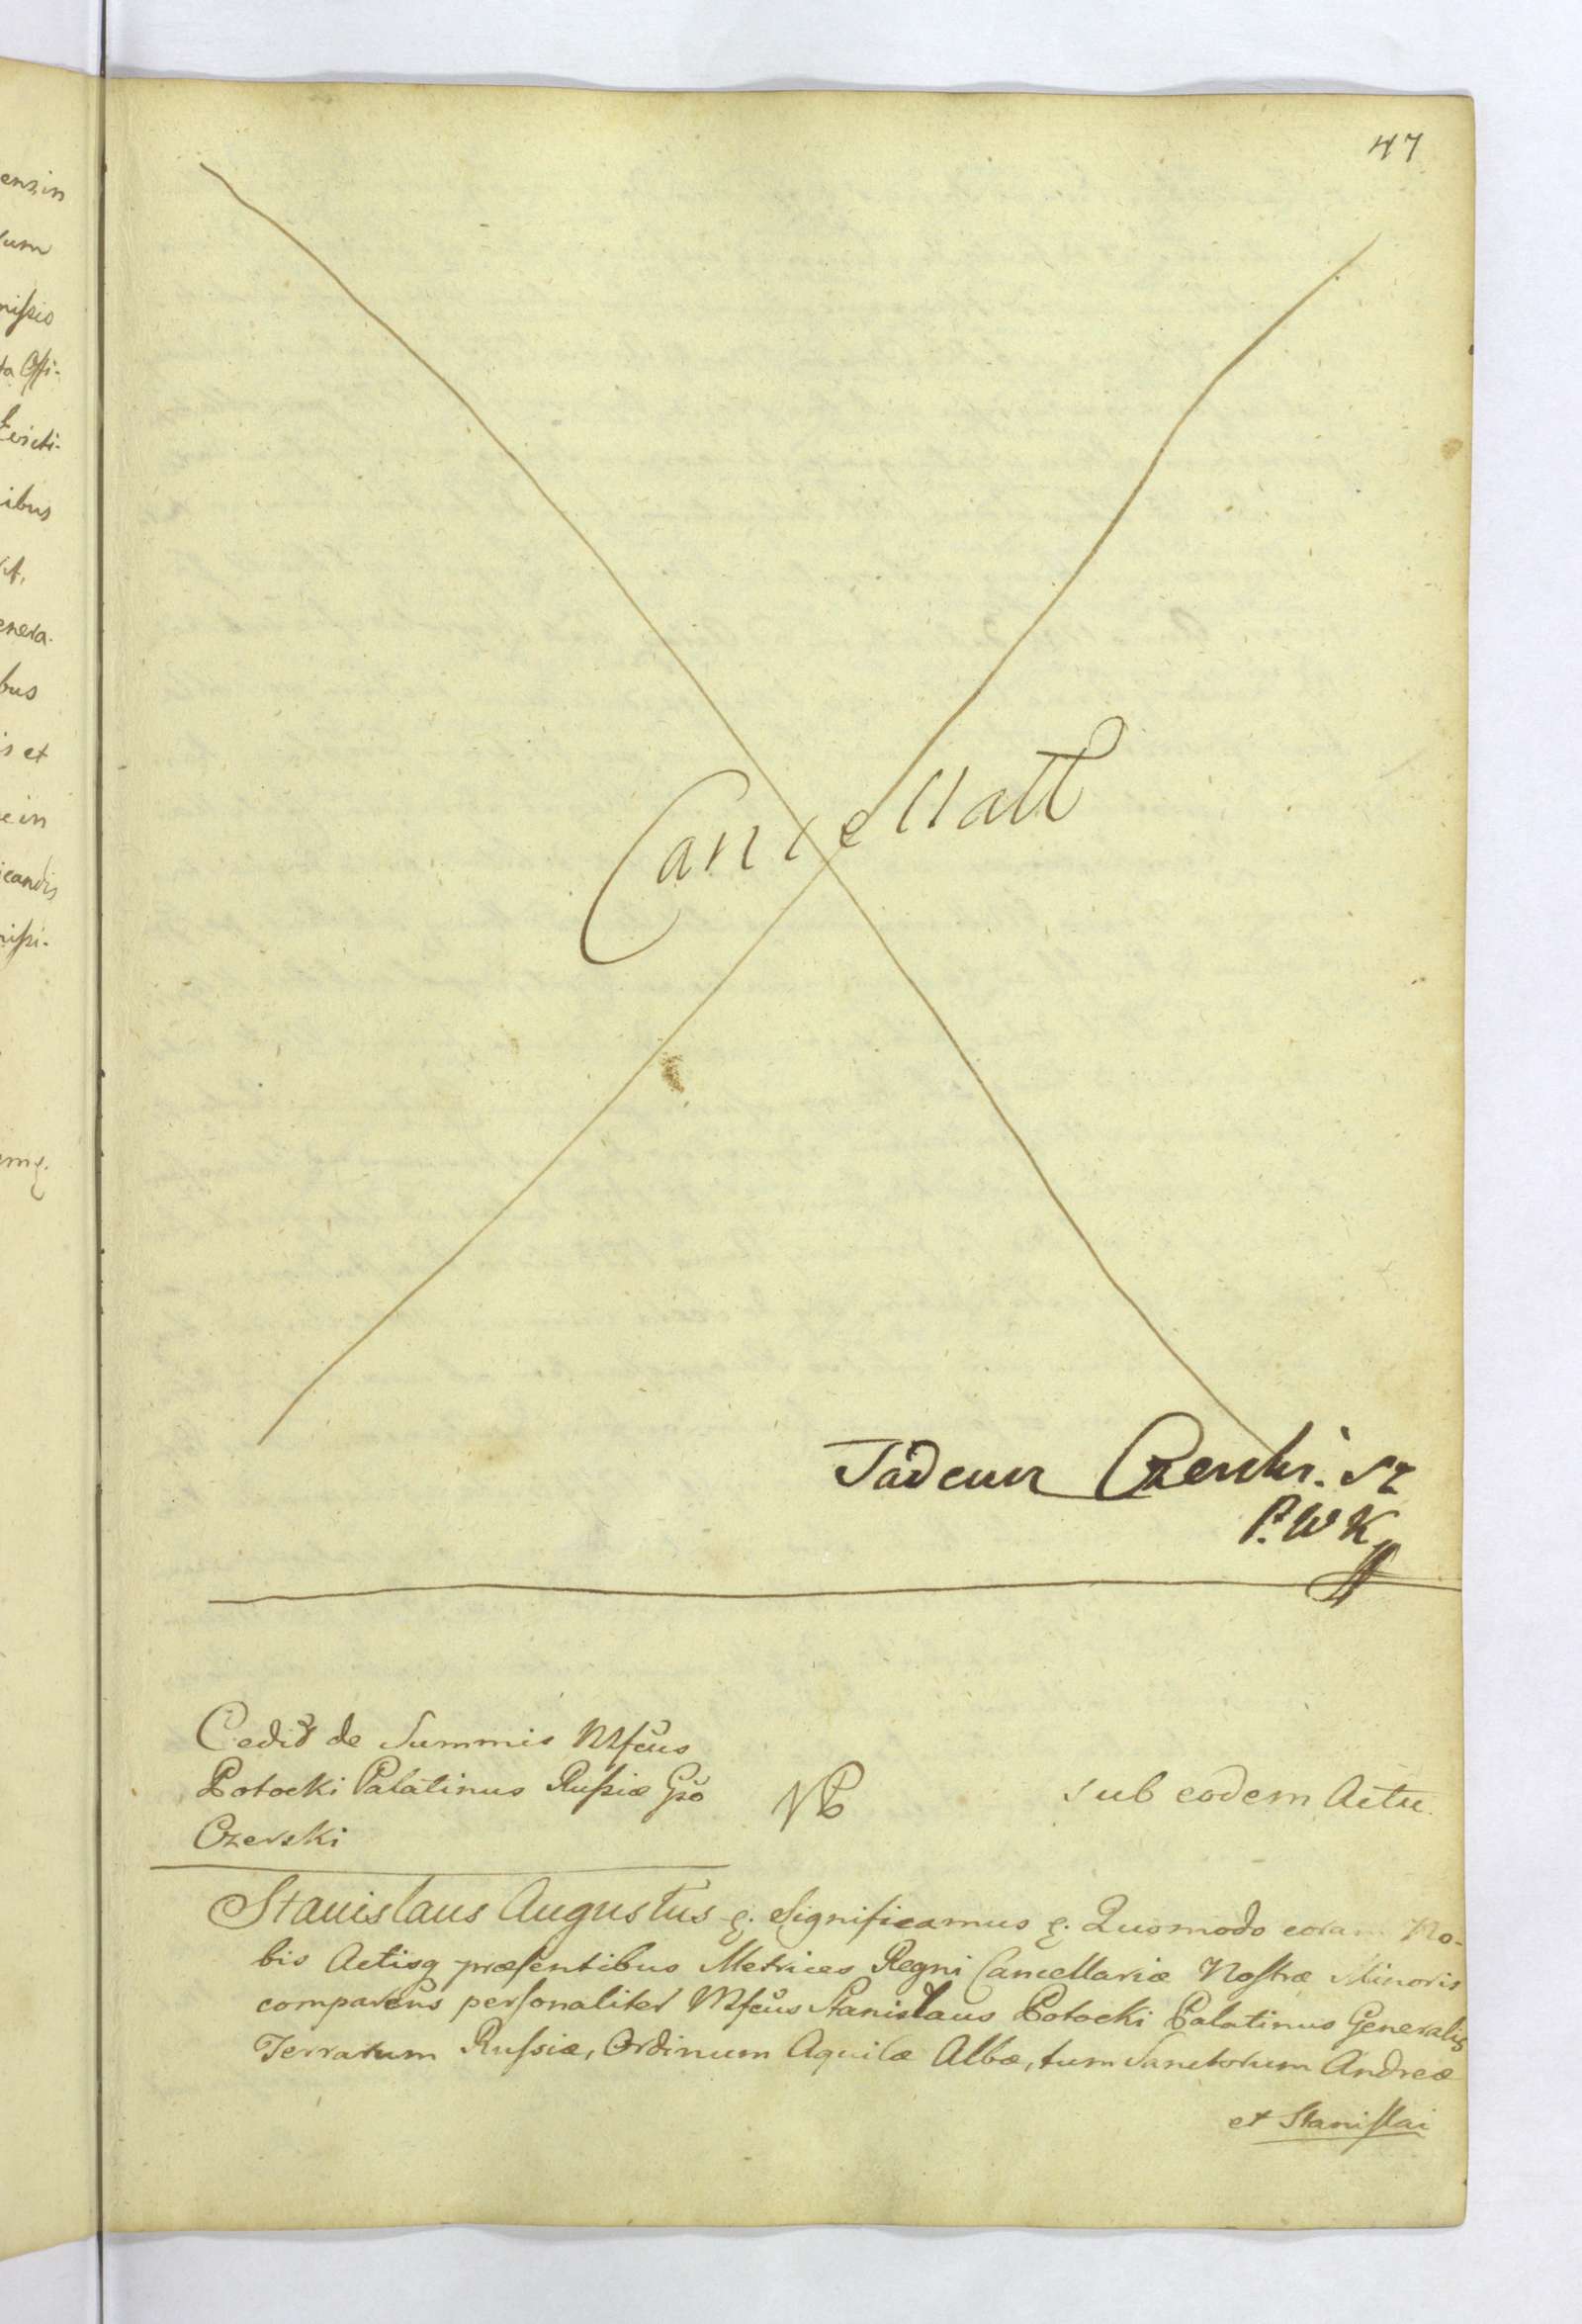 47
Cancellatt
Tadeusz Czerski. SZ
P. W K
Cedit de Summis Mfcus
Potocki Palatinus Rußiæ Gso
Czerski
NB
sub eodem Actu.
Stanislaus Augustus &. Significamus &. Quomodo coram No-
bis Actisq præsentibus Metrices Regni Cancellariæ Nostræ Minoris
comparens personaliter Mfcus Stanislaus Potocki Palatinus Generalis
Terrarum Rußiæ, Ordinum Aquilæ Albæ, tum Sanctorum Andreæ
et Stanislai